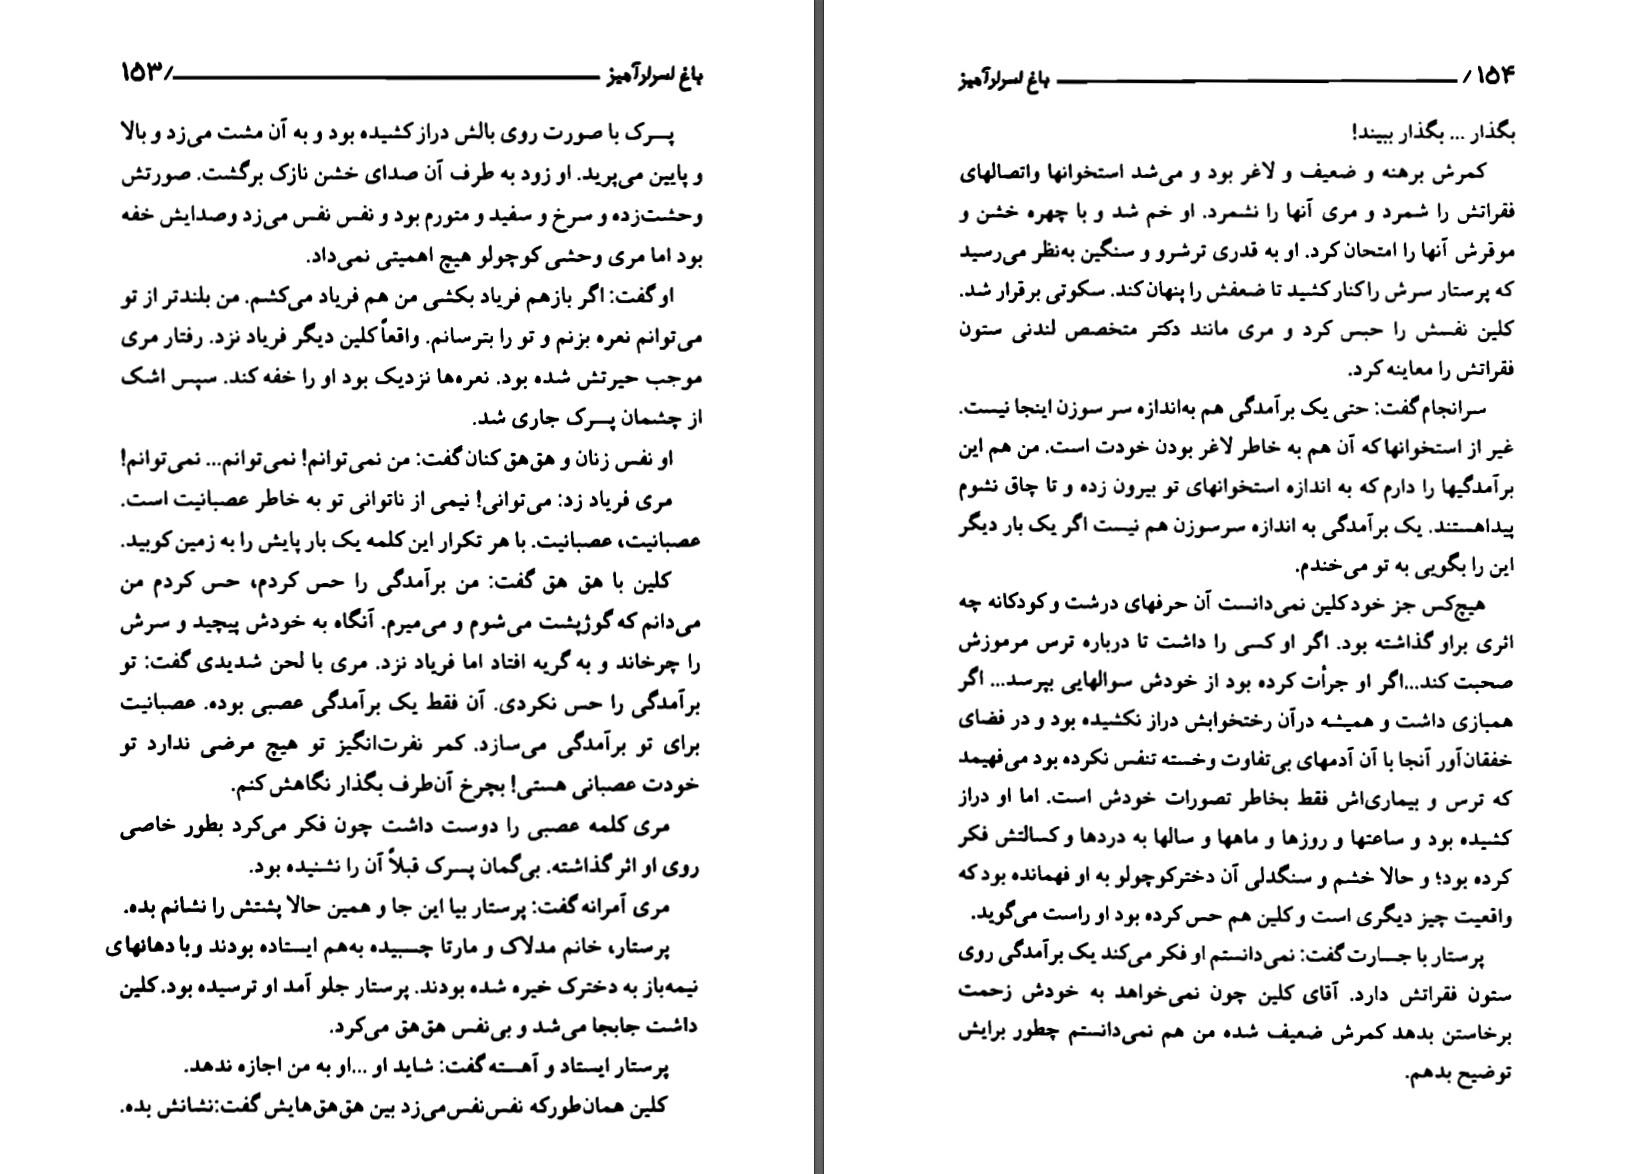 باغ اسرارآمیز / ۱۵۳
پسرک با صورت روی بالش دراز کشیده بود و به آن مشت می‌زد و بالا
و پایین می‌پرید. او زود به طرف آن صدای خشن نازک برگشت. صورتش
وحشت‌زده و سرخ و سفید و متورم بود و نفس نفس می‌زد وصدایش خفه
بود اما مری وحشی کوچولو هیچ اهمیتی نمی‌داد.
او گفت: اگر بازهم فریاد بکشی من هم فریاد می‌کشم. من بلندتر از تو
می‌توانم نعره بزنم و تو را بترسانم. واقعاً کلین دیگر فریاد نزد. رفتار مری
موجب حیرتش شده بود. نعره‌ها نزدیک بود او را خفه کند. سپس اشک
از چشمان پسرک جاری شد.
او نفس زنان و هق‌هق کنان گفت: من نمی‌توانم! نمی‌توانم... نمی‌توانم!
مری فریاد زد: می‌توانی! نیمی از ناتوانی تو به خاطر عصبانیت است.
عصبانیت، عصبانیت. با هر تکرار این کلمه یک بار پایش را به زمین کوبید.
کلین با هق هق گفت: من برآمدگی را حس کردم، حس کردم من
می‌دانم که گوژپشت می‌شوم و می‌میرم. آنگاه به خودش پیچید و سرش
را چرخاند و به گریه افتاد اما فریاد نزد. مری با لحن شدیدی گفت: تو
برآمدگی را حس نکردی. آن فقط یک برآمدگی عصبی بوده. عصبانیت
برای تو برآمدگی می‌سازد. کمر نفرت‌انگیز تو هیچ مرضی ندارد تو
خودت عصبانی هستی! بچرخ آن‌طرف بگذار نگاهش کنم.
مری کلمه عصبی را دوست داشت چون فکر می‌کرد بطور خاصی
روی او اثر گذاشته. بی‌گمان پسرک قبلاً آن را نشنیده بود.
مری آمرانه گفت: پرستار بیا این جا و همین حالا پشتش را نشانم بده.
پرستار، خانم مدلاک و مارتا چسبیده به‌هم ایستاده بودند وبا دهانهای
نیمه‌باز به دخترک خیره شده بودند. پرستار جلو آمد او ترسیده بود. کلین
داشت جابجا می‌شد و بی‌نفس هق‌هق می‌کرد.
پرستار ایستاد و آهسته گفت: شاید او ...او به من اجازه ندهد.
کلین همان‌طورکه نفس‌نفس‌می‌زد بین هق‌هق‌هایش گفت:نشانش بده.
۱۵۴ / باغ اسرارآمیز
بگذار ... بگذار ببیند!
کمرش برهنه و ضعیف و لاغر بود و می‌شد استخوانها واتصالهای
فقراتش را شمرد و مری آنها را نشمرد. او خم شد و با چهره خشن و
موقرش آنها را امتحان کرد. او به قدری ترشرو و سنگین به‌نظر می‌رسید
که پرستار سرش را کنار کشید تا ضعفش را پنهان کند. سکوتی برقرار شد.
کلین نفسش را حبس کرد و مری مانند دکتر متخصص لندنی ستون
فقراتش را معاینه کرد.
سرانجام گفت: حتی یک برآمدگی هم به‌اندازه سر سوزن اینجا نیست.
غیر از استخوانها که آن هم به خاطر لاغر بودن خودت است. من هم این
برآمدگیها را دارم که به اندازه استخوانهای تو بیرون زده و تا چاق نشوم
پیداهستند. یک برآمدگی به اندازه سرسوزن هم نیست اگر یک بار دیگر
این را بگویی به تو می‌خندم.
هیچ‌کس جز خود کلین نمی‌دانست آن حرفهای درشت و کودکانه چه
اثری براو گذاشته بود. اگر او کسی را داشت تا درباره ترس مرموزش
صحبت کند...اگر او جرأت کرده بود از خودش سوالهایی بپرسد... اگر
همبازی داشت و همیشه درآن رختخوابش دراز نکشیده بود و در فضای
خفقان‌آور آنجا با آن آدمهای بی‌تفاوت وخسته تنفس نکرده بود می‌فهیمد
که ترس و بیماری‌اش فقط بخاطر تصورات خودش است. اما او دراز
کشیده بود و ساعتها و روزها و ماهها و سالها به دردها و کسالتش فکر
کرده بود؛ و حالا خشم و سنگدلی آن دخترکوچولو به او فهمانده بود که
واقعیت چیز دیگری است و کلین هم حس کرده بود او راست می‌گوید.
پرستار با جسارت گفت: نمی‌دانستم او فکر می‌کند یک برآمدگی روی
ستون فقراتش دارد. آقای کلین چون نمی‌خواهد به خودش زحمت
برخاستن بدهد کمرش ضعیف شده من هم نمی‌دانستم چطور برایش
توضیح بدهم.